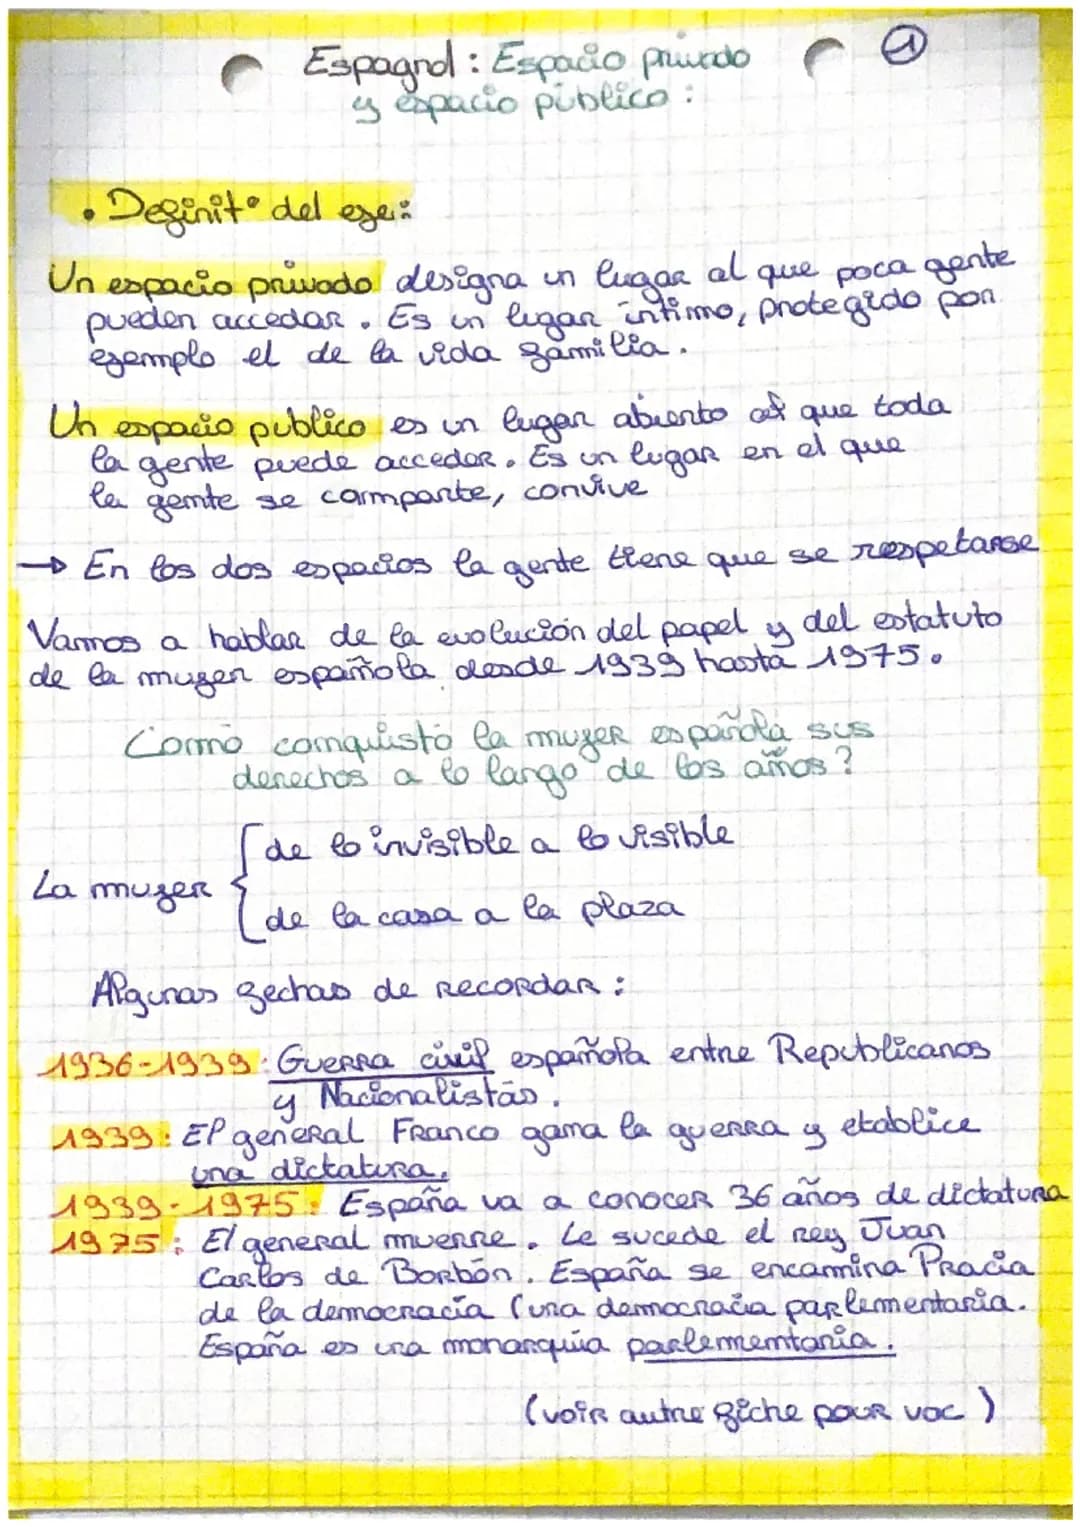 ①
Espagnol : Espacio privado
y espacio público :
• Definit° del eje :
Un espacio privado designa un lugar al que poca gente
pueden accedar. Es un lugar íntimo, protegido por
ejemplo el de la vida familia.
Un espacio publico es un lugar abierto al que toda
la gente puede acceder. Es un lugar en el que
la gente se comparte, convive
→ En los dos espacios la gente tiene que se respetarse
Vamos a hablar de la evolución del papel y del estatuto
de la mujer española desde 1939 hasta 1975.
Como conquistó la mujer española sus
derechos a lo largo de los años ?
de lo invisible a lo visible
La mujer {
de la casa a la plaza
Algunas fechas de recordar :
1936-1939 : Guerra civil española entre Republicanos
y Nacionalistas.
1939 : El general Franco gana la guerra y etablice
una dictatura.
1939-1975 : España va a conocer 36 años de dictatura
1975 : El general muerre. Le sucede el rey Juan
Carlos de Borbón. España se encamina Pracia
de la democracia (una democracia parlementaria.
España es una monarquía parlementaria.
(voir autre fiche pour voc )